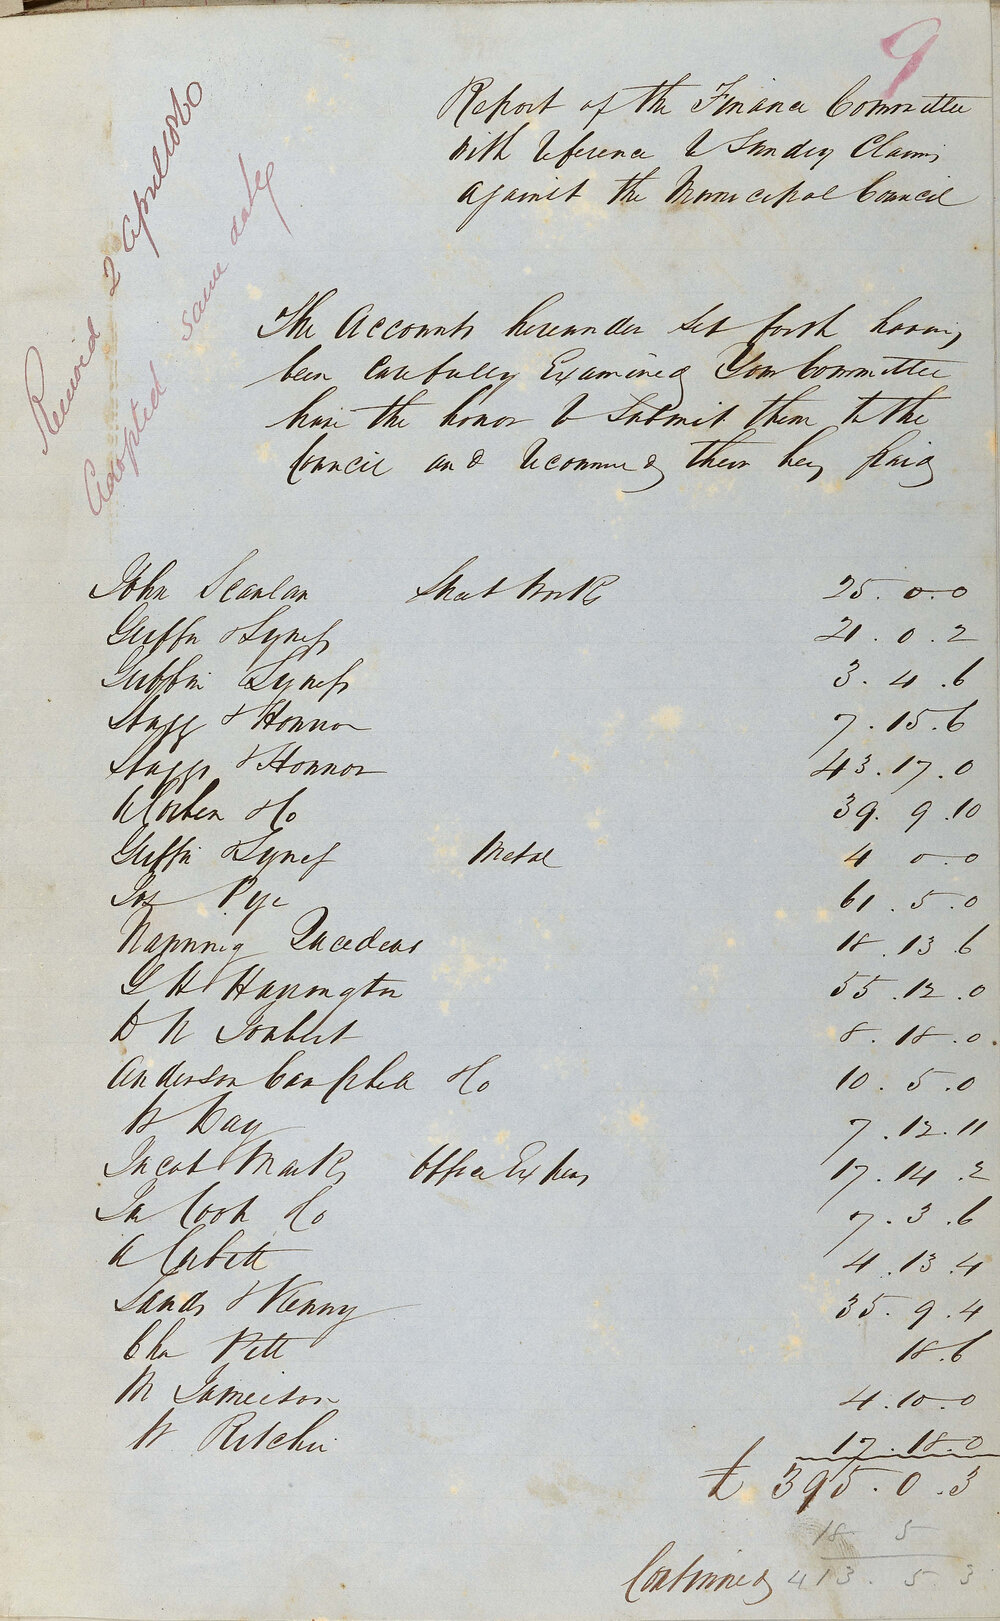 9
Report of the Finance Committee
with reference to Sundry Claims
against the Municipal Council
Received 2 April 1860
Adopted same date
The Accounts hereunder set forth having
been carefully Examined Your Committee
have the honor to Submit them to the
Council and recommend their being paid
John Scanlan Street Works 25.0.0
Griffin & Lynch 21.0.2
Griffin Lynch 3.4.6
Stagg & Honnor 7.15.6
Staggs & Honnor 43.17.0
& Co 39.9.10
Griffin & Lynch Metal 4 0.0
Jas Pye 61.5.0
18.13.6
G H Harrington 55.12.0
D N Joubert 8.18.0
Anderson Campbell & Co 10.5.0
W Day 7.12.11
Jacob Marks Office Expens 17.14.2
Jn Cook Co 7.3.6
A Corbett 4.13.4
Sands & Kenny 35.9.4
Cha Pitt 18.6
M Jameison 4.10.0
W Ritchie 17.18.0
£ 395.0.3
18 5
Continued 413.5.3